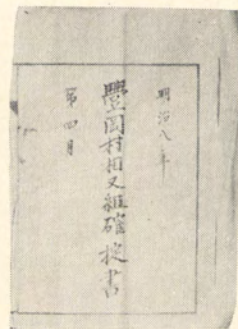 明治八年
豐岡村相又組確定書
第四月